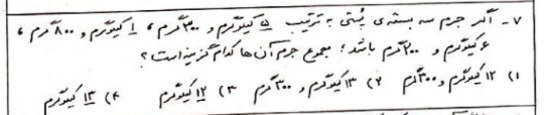 ۷- اگر جرم سه بسته‌ی پُستی به ترتیب ۵ کیلوگرم و ۳۰۰ گرم ، ۱ کیلوگرم و ۸۰۰ گرم ،
۶ کیلوگرم و ۲۰۰ گرم باشد ؛ مجموع جرم آن ها کدام گزینه است ؟
۱) ۱۲ کیلوگرم و ۳۰۰ گرم ۲) ۱۳ کیلوگرم و ۳۰۰ گرم ۳) ۱۲ کیلوگرم ۴) ۱۳ کیلوگرم